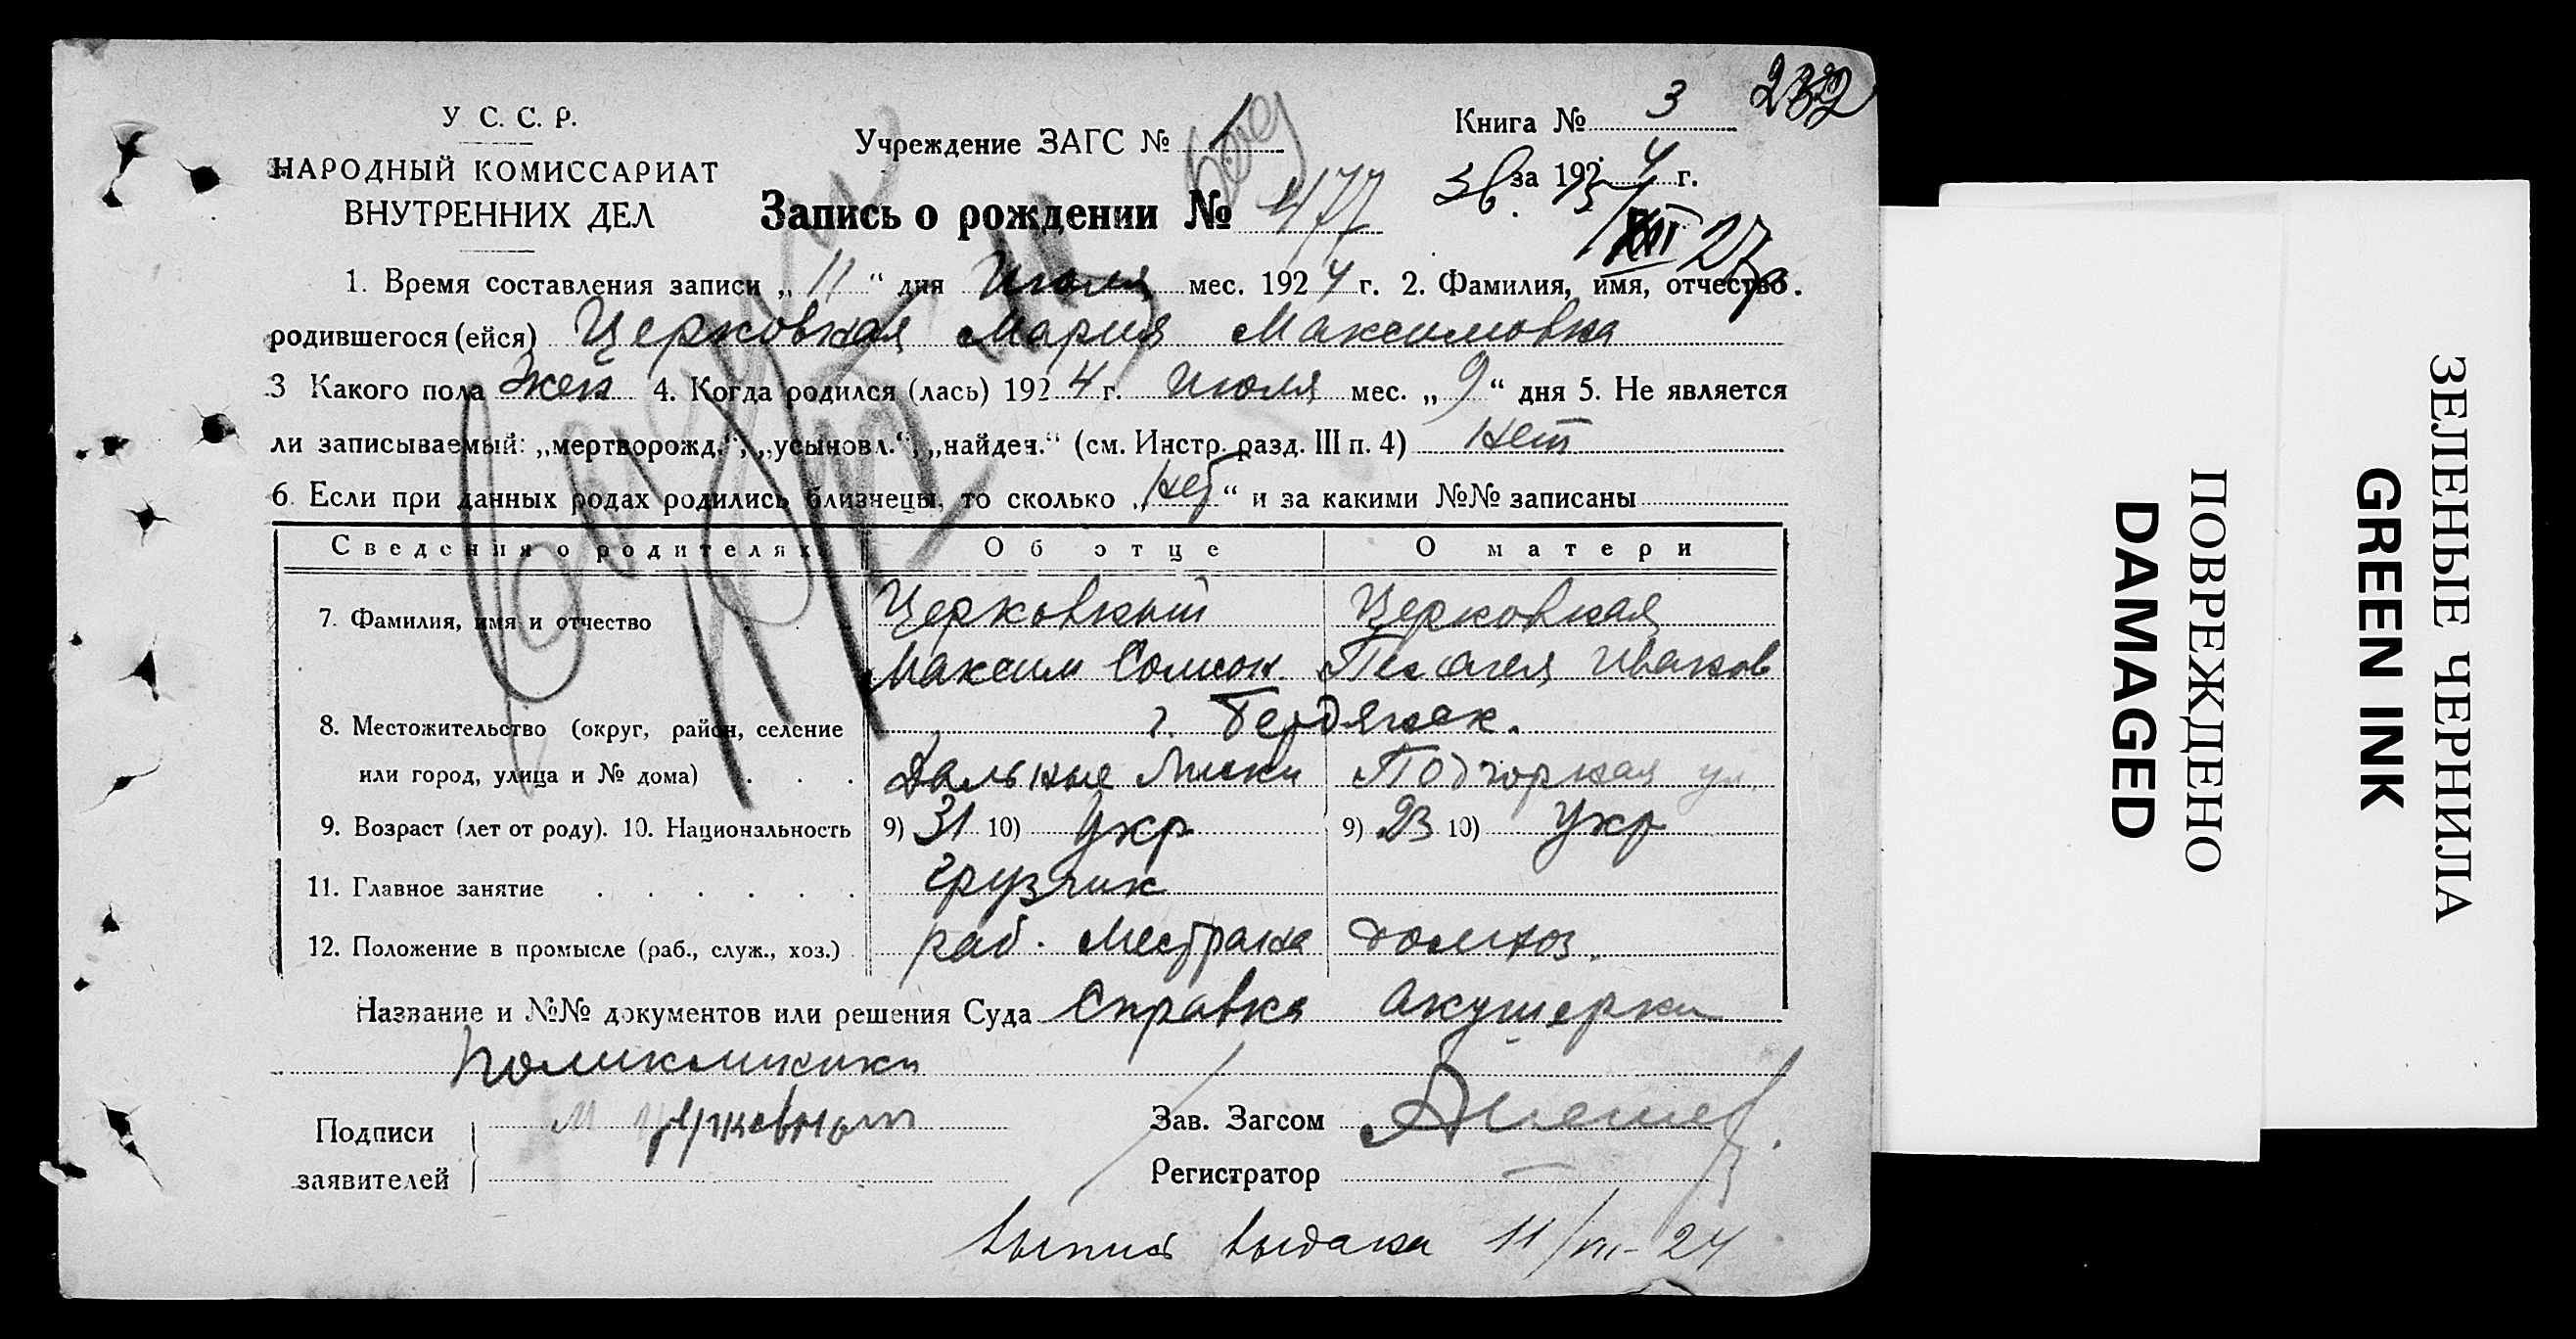 232
У С. С. Р.
НАРОДНЫЙ КОМИССАРИАТ
ВНУТРЕННИХ ДЕЛ
Учреждение ЗАГС № 1
Книга № 3
за 192 4 г.
Запись о рождении № 477
XII 27
1. Время составления записи „ 11 “ дня Июля мес. 192 4 г. 2. Фамилия, имя, отчество.
родившегося (ейся) Церковная Мария Максимовна
3 Какого пола жен 4. Когда родился (лась) 192 4 г. Июля мес. „ 9 “ дня 5. Не является
ли записываемый: „мертворожд.“, „усыновл.“, „найден.“ (см. Инстр. разд. III п. 4) нет
6. Если при данных родах родились близнецы, то сколько „ нет “ и за какими №№ записаны
Сведения о родителях Об отце О матери
7. Фамилия, имя и отчество Церковный Церковная
Максим Солнон. Пелагея Иванов
8. Местожительство (округ, район, селение г. Бердянск.
или город, улица и № дома) . . . Дальные Лиски Подгорная ул.
9. Возраст (лет от роду). 10. Национальность 9) 31 10) Укр 9) 23 10) Укр
11. Главное занятие . . . . . . грузчик
12. Положение в промысле (раб., служ., хоз.) раб. Местрана домхоз.
Название и №№ документов или решения Суда Справка Акушерки
поликлиники
Подписи М Церковный
заявителей
Зав. Загсом
Регистратор
выпись выдана 11/VII-24
ПОВРЕЖДЕНО
DAMAGED
ЗЕЛЕНЫЕ ЧЕРНИЛА
GREEN INK